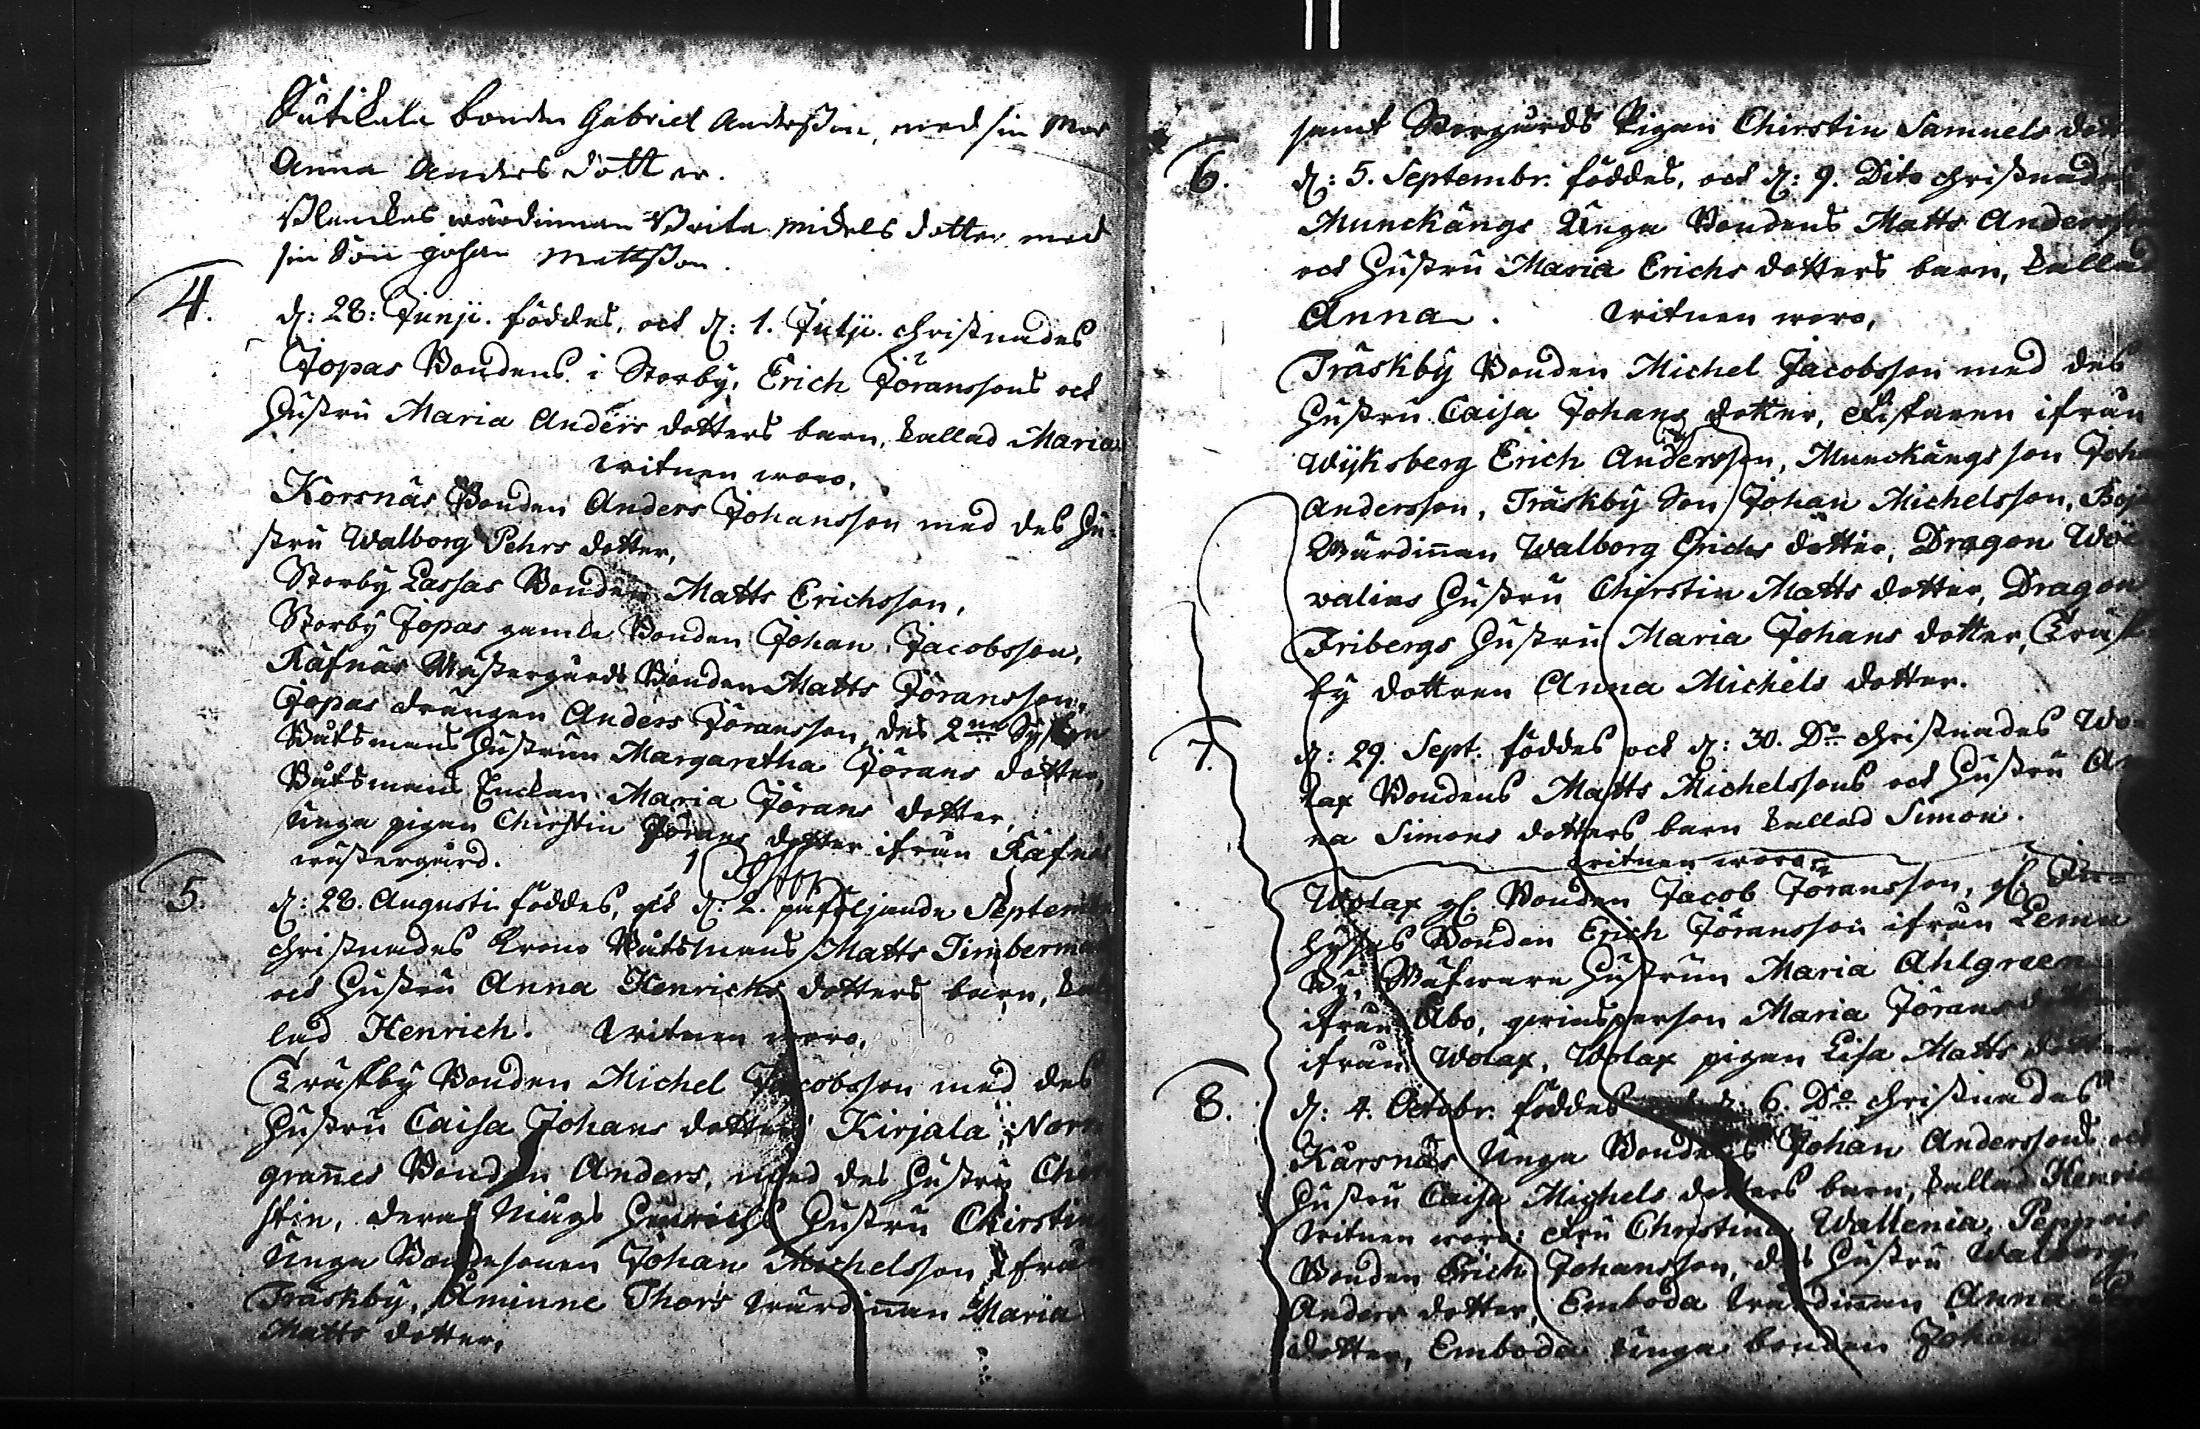 bonden Gabriel Andersson, med sin Mor
Anna Anders dotter.
wärdinnan Brita Mickels dotter med
sin Son Johan Mattsson.
4. d: 28: Junji. föddes, och d: 1. Julji. christnades
Jopas Bondens i Storby, Erich Jöranssons och
Hustru Maria Anders dotters barn, kallad Maria
Witnen woro,
Korsnäs Bonden Anders Johansson med des Hu-
stru Walborg Pehrs dotter,
Storby Lassas Bonden Matts Erichsson,
Storby Jopas gamle Bonden Johan Jacobsson,
Räfnäs Wästergårds Bonden Matts Jöransson,
Jopas drängen Anders Jöransson, des 2ne Systrar
Båtsmans Hustrun Margaretha Jörans dotter,
Båtsmans Enckan Maria Jörans dotter,
Unga pigan Chirstin Jörans dotter ifrån Räfnäs
wästergård.
5. d: 28. Augusti föddes, och d: 2. påföljande Septemb
christnades Krono Båtsmans Matts Timberman
och Hustru Anna Henrichs dotters barn, kal
lad Henrich. Witnen woro,
Träskby Bonden Michel Jacobsson med des
Hustru Caisa Johans dotter, Kirjala Norr
grannes Bonden Anders, med des Hustru Chir
stin, deras Mågs Henrichs Hustru Chirstin
Unga Bondesonen Johan Michelsson ifrån
Träskby, Åminne Thors Wärdinnan Maria
Matts dotter,
samt Norrgårds Pigan Chirstin Samuels dott
6. d: 5. Septembr. föddes, och d: 9. Dito christnades
Munckängs Unga Bondens Matts Andersson
och Hustru Maria Erichs dotters barn, kallad
Anna. Witnen woro,
Träskby Bonden Michel Jacobsson med des
Hustru Caisa Johans dotter, ifrån
Wijksberg Erich Andersson, Munckängs son Joh
Andersson, Träskby Son Johan Michelsson,
Wärdinnan Walborg Erichs dotter, Dragon
walins Hustru Chirstin Matts dotter, Dragon
Fribergs Hustru Maria Johans dotter, Träsk
by dottren Anna Michels dotter.
7. d: 29. Sept. föddes och d: 30. Do christnades Wo-
lax Bondens Matts Michelssons och Hustru An
na Simons dotters barn kallad Simon.
Witnen woro:
Wolax gl. Bonden Jacob Jöransson, gl.
Bonden Erich Jöransson ifrån Lemu
By, Hustrun Maria Ahlgreen
ifrån Åbo, Maria Jörans dotter
ifrån Wolax, Wolax pigan Lisa Matts dotter.
8. d: 4. Octobr. föddes och d: 6. Do christnades
Kårsnäs Unga Bondens Johan Anderssons och
Hustru Caisa Michels dotters barn, kallad Henric
Witnen woro: Fru Christina Wallenia,
Bonden Erich Johansson, des Hustru Walborg
Anders dotter, Emboda Wärdinnan Anna
dotter, Emboda Unga bonden Johan